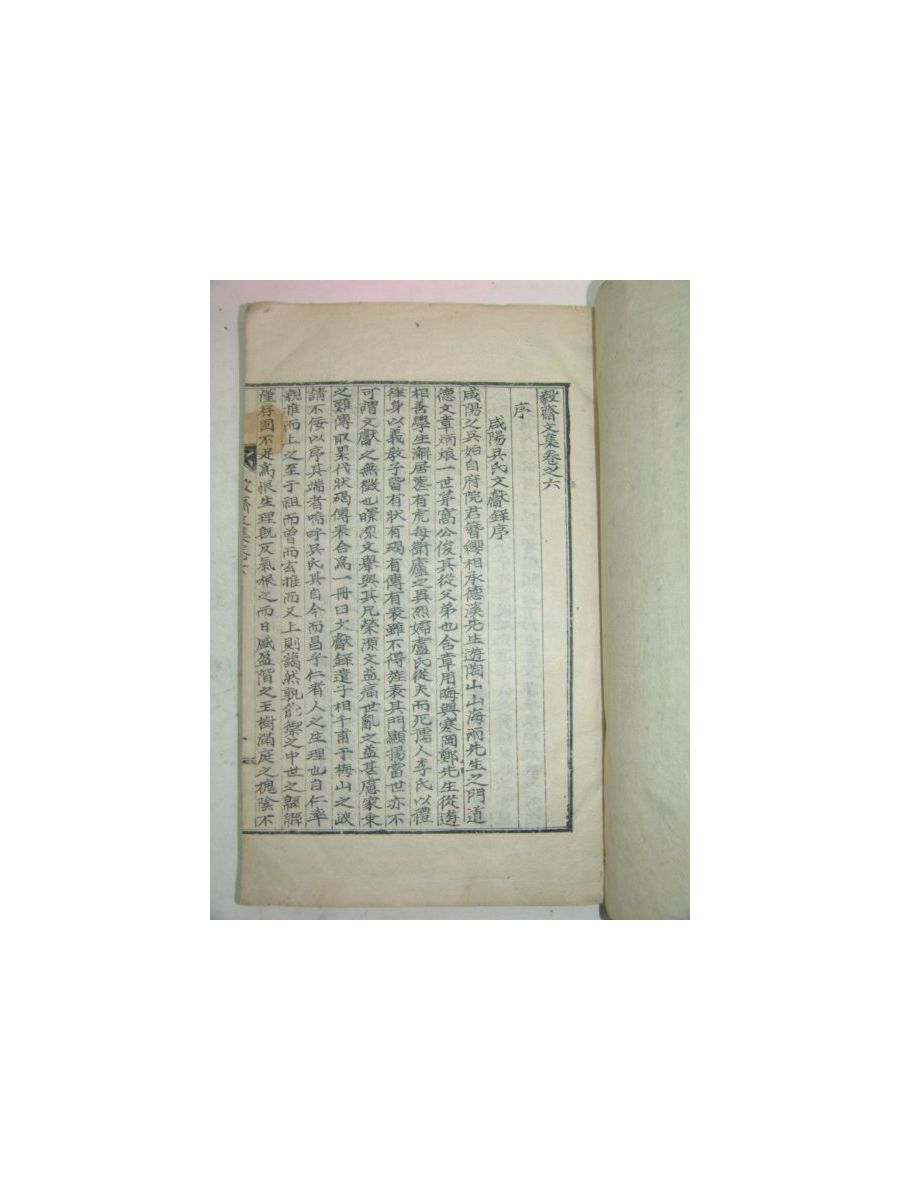 毅齋文集卷之六
序
咸陽吳氏文獻錄序
咸陽之吳始自府院君簪纓相承德溪先生遊陶山山海兩先生之門道
德文章炳烺一世茅窩公俊其從父弟也含章用晦與寒岡鄭先生從遊
相善學生澥居廬有虎每衛廬之異烈婦盧氏從夫而死孺人李氏以禮
律身以義敎子皆有狀有碣有傳有表雖不得旌表其門顯揚當世亦不
可謂文獻之無徵也暻源文擧與其兄榮源文益痛世亂之益甚慮家乘
之難傳取累代狀碣傳表合爲一冊曰文獻錄遣子相千甫于梅山之
請不佞以序其端者嗚呼吳氏其自今而昌乎仁者人之生理也自仁率
親推而上之至于祖而曾而玄推而又上則藹然孰能禦之中世之
僅存固不足爲恨生理旣反氣候之而日盛盈階之玉樹滿庭之槐陰不
毅齋文集卷六
一